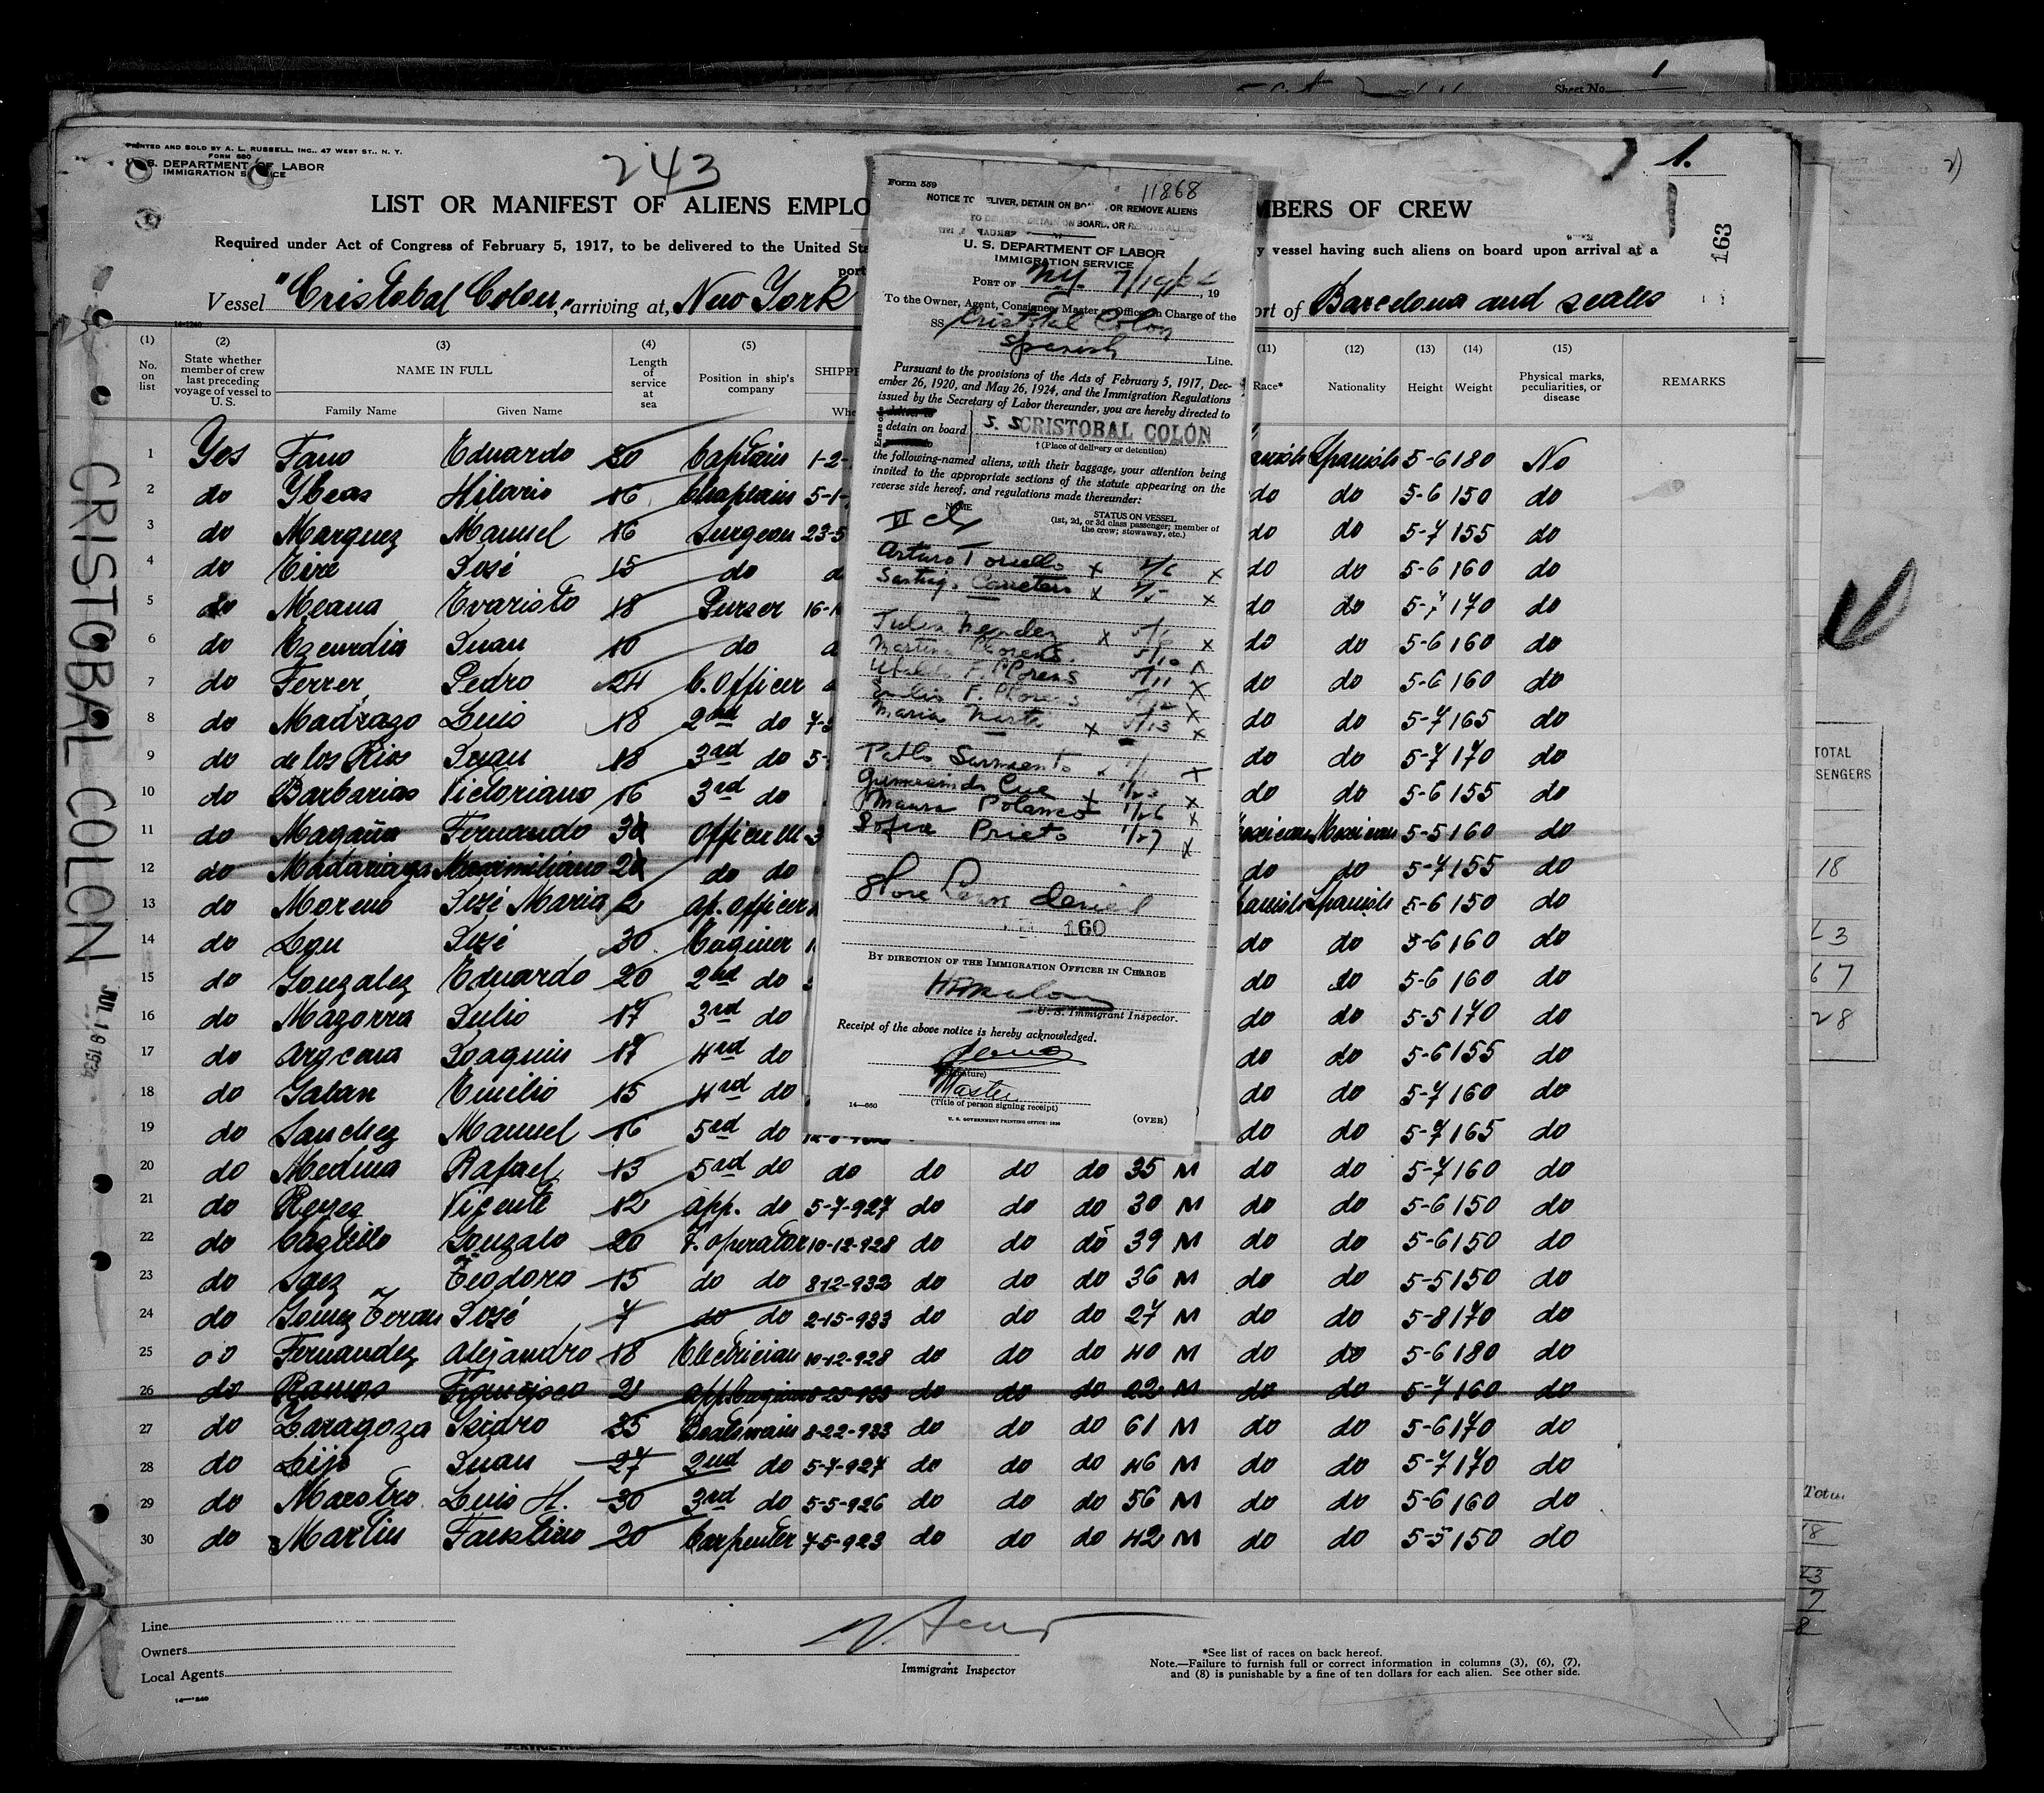 Sheet No. 1
PRINTED AND SOLD BY A. L. RUSSELL, INC., 47 WEST ST., N. Y.
FORM 680
U. S. DEPARTMENT OF LABOR
IMMIGRATION SERVICE
243
1.
163
LIST OR MANIFEST OF ALIENS EMPLO
MBERS OF CREW
Required under Act of Congress of February 5, 1917, to be delivered to the United Sta
y vessel having such aliens on board upon arrival at a
port
Vessel "Cristobal Colon," arriving at, New York
ort of Barcelona and scales
14-1240
(1) (2) (3) (4) (5) (11) (12) (13) (14) (15)
No. on list
State whether member of crew last preceding voyage of vessel to U. S.
NAME IN FULL
Family Name Given Name
Length of service at sea
Position in ship's company
SHIPPE
Whe
Race* Nationality Height Weight
Physical marks, peculiarities, or disease
REMARKS
1 Yes Fano Eduardo 30 Captain 1-2- anish Spanish 5-6 180 No
2 do Ybeas Hilario 16 Chaplain 5-1- do do 5-6 150 do
3 do Marquez Manuel 16 Surgeon 23-5 do do 5-7 155 do
4 do José 15 do d do do 5-6 160 do
5 do Meana Evaristo 18 Purser 16-1 do do 5-7 170 do
6 do Egcurdia Juan 10 do d do do 5-6 160 do
7 do Ferrer Pedro 24 C. Officer do do 5-6 160 do
8 do Madrazo Luis 18 2nd do 7- do do 5-7 165 do
9 do de los Rios Juan 18 3rd do 5- do do 5-7 170 do
10 do Barbarias Victoriano 16 3rd do do do 5-6 155 do
11 do Magaña Fernando Officer M 3 exican Mexican 5-5 160 do
12 do Madariaga Maximiliano do do do do 5-7 155 do
13 do Moreno José Maria 2 ap. officer panish Spanish 5-6 150 do
14 do José 30 Enginer 1 do do 5-6 160 do
15 do Gonzalez Eduardo 20 2nd do do do 5-6 160 do
16 do Mazorra Julio 17 3rd do do do 5-5 170 do
17 do Argcena Joaquin 17 4rd do do do 5-6 155 do
18 do Galan Emilio 15 4rd do do do 5-7 160 do
19 do Sanchez Manuel 16 5rd do do do 5-7 165 do
20 do Medina Rafael 13 5rd do do do do do 35 M do do 5-7 160 do
21 do Reyes Vicente 12 app. do 5-7-927 do do do 30 M do do 5-6 150 do
22 do Castillo Gonzalo 20 T. operator 10-12-928 do do do 39 M do do 5-6 150 do
23 do Saez Teodoro 15 do do 8-12-932 do do do 36 M do do 5-5 150 do
24 do Gomez Teran José 7 do do 2-15-933 do do do 27 M do do 5-8 170 do
25 do Fernandez Alejandro 18 Electrician 10-12-928 do do do 40 M do do 5-6 180 do
26 do Ramos Francisco 2 app. Enginer 8-25-933 do do do 22 M do do 5-7 160 do
27 do Zaragoza Isidro 35 Boatswain 8-22-933 do do do 61 M do do 5-6 170 do
28 do Lijó Juan 27 2nd do 5-7-927 do do do 46 M do do 5-7 170 do
29 do Maestro Luis H. 30 3rd do 5-5-926 do do do 56 M do do 5-6 160 do
30 do Martin Faustino 20 Carpenter 7-5-923 do do do 42 M do do 5-5 150 do
Line
Owners
Local Agents
14-1240
Immigrant Inspector
*See list of races on back hereof.
Note.—Failure to furnish full or correct information in columns (3), (6), (7),
and (8) is punishable by a fine of ten dollars for each alien. See other side.
CRISTOBAL COLON
JUL 19 1934
Form 559
11868
NOTICE TO DELIVER, DETAIN ON BOARD, OR REMOVE ALIENS
TO DELIVER, DETAIN ON BOARD, OR REMOVE ALIENS
U. S. DEPARTMENT OF LABOR
IMMIGRATION SERVICE
PORT OF N.Y. 7/19/34, 19
To the Owner, Agent, Consignee, Master or Officer in Charge of the
SS Cristobal Colon
Spanish Line.
Pursuant to the provisions of the Acts of February 5, 1917, Dec-
ember 26, 1920, and May 26, 1924, and the Immigration Regulations
issued by the Secretary of Labor thereunder, you are hereby directed to
detain on board S. S CRISTOBAL COLON
† (Place of delivery or detention)
the following-named aliens, with their baggage, your attention being
invited to the appropriate sections of the statute appearing on the
reverse side hereof, and regulations made thereunder:
NAME STATUS ON VESSEL
(1st, 2d, or 3d class passenger; member of the crew; stowaway, etc.)
II cl
Arturo Toriello x 2/6 x
Santiago Carretero x 2/5 x
Julia Mendez x 5/6 x
Martina Llorens 5/10 x
Ubaldo F. Llorens 5/11 x
Julio F. Llorens x
Maria Marte x 5/13 x
Pablo Sarmento x
Gumersindo Cue x x
Maura Polanco 1/26 x
Sofia Prieto 1/27 x
Shore Leave denied
160
BY DIRECTION OF THE IMMIGRATION OFFICER IN CHARGE
U. S. Immigrant Inspector.
Receipt of the above notice is hereby acknowledged.
(Signature)
Master
(Title of person signing receipt)
14—660
(OVER)
U. S. GOVERNMENT PRINTING OFFICE: 1930
TOTAL
SENGERS
18
23
67
28
Total
18
23
7
8